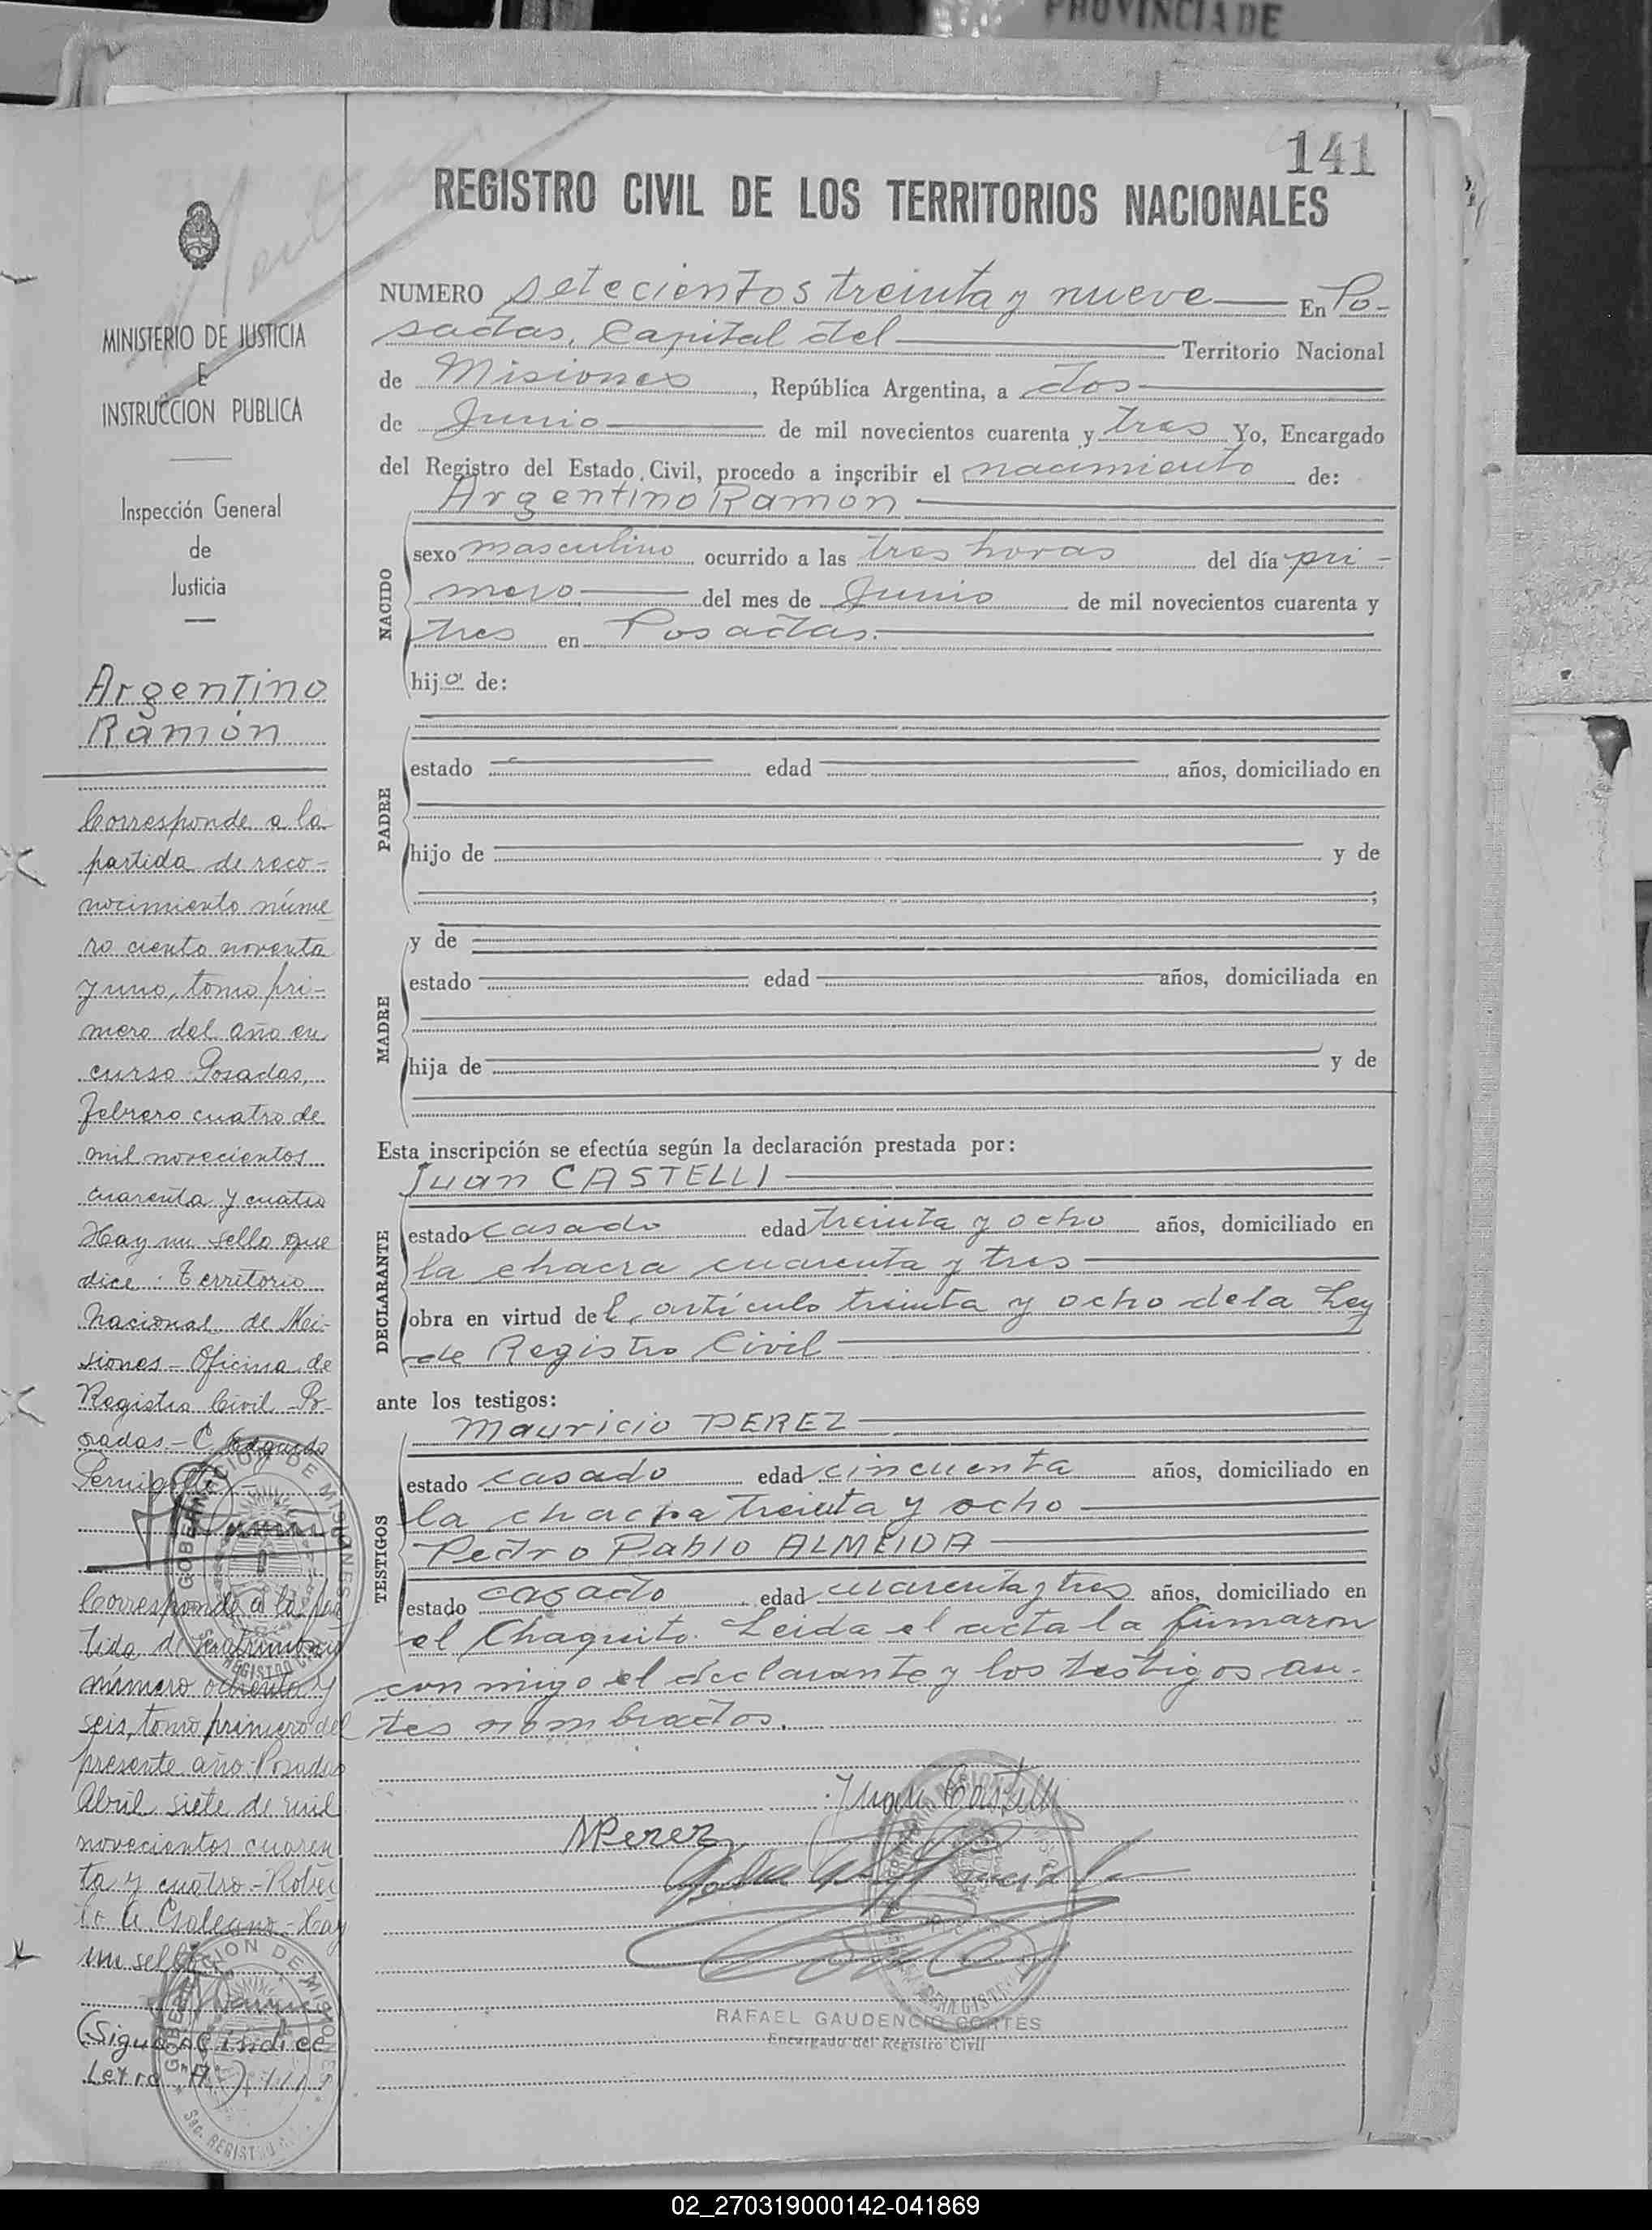 PROVINCIA DE
141
REGISTRO CIVIL DE LOS TERRITORIOS NACIONALES
MINISTERIO DE JUSTICIA
E
INSTRUCCION PUBLICA
Inspección General
de
Justicia
Argentino
Ramón
Corresponde a la
partida de reco-
nocimiento núme
ro ciento noventa
y uno, tomo pri-
mero del año en
curso Posadas,
Febrero cuatro de
mil novecientos
cuarenta y cuatro
Hay un sello que
dice: Territorio
Nacional de Mi-
siones - Oficina de
Registro Civil - Po-
sadas - C. Edgardo
GOBERNACION DE MISIONES
REGISTRO
Corresponde a la par
tida de matrimonio
número ochenta y
seis, tomo primero del
presente año - Posadas
Abril siete de mil
novecientos cuaren
ta y cuatro - Rober
to A. Galeano - Hay
un sello
GOBERNACION DE MISIONES
(Sigue índice
Letra "A")
Sec. REGISTRO
NUMERO setecientos treinta y nueve En Po-
sadas, Capital del Territorio Nacional
de Misiones, República Argentina, a dos
de Junio de mil novecientos cuarenta y tres Yo, Encargado
del Registro del Estado Civil, procedo a inscribir el nacimiento de:
Argentino Ramón
NACIDO
sexo masculino ocurrido a las tres horas del día pri-
mero del mes de Junio de mil novecientos cuarenta y
tres en Posadas.
hijo de:
PADRE
estado edad años, domiciliado en
hijo de y de
;
y de
MADRE
estado edad años, domiciliada en
hija de y de
Esta inscripción se efectúa según la declaración prestada por:
Juan CASTELLI
DECLARANTE
estado casado edad treinta y ocho años, domiciliado en
la chacra cuarenta y tres
obra en virtud del artículo treinta y ocho de la Ley
de Registro Civil
ante los testigos:
Mauricio PEREZ
TESTIGOS
estado casado edad cincuenta años, domiciliado en
la chacra treinta y ocho
Pedro Pablo ALMEIDA
estado casado edad cuarenta y tres años, domiciliado en
el Chaquito. Leida el acta la firmaron
conmigo el declarante y los testigos an-
tes nombrados.
Juan Castelli
MPerez
RAFAEL GAUDENCIO CORTES
Encargado del Registro Civil
02_270319000142-041869